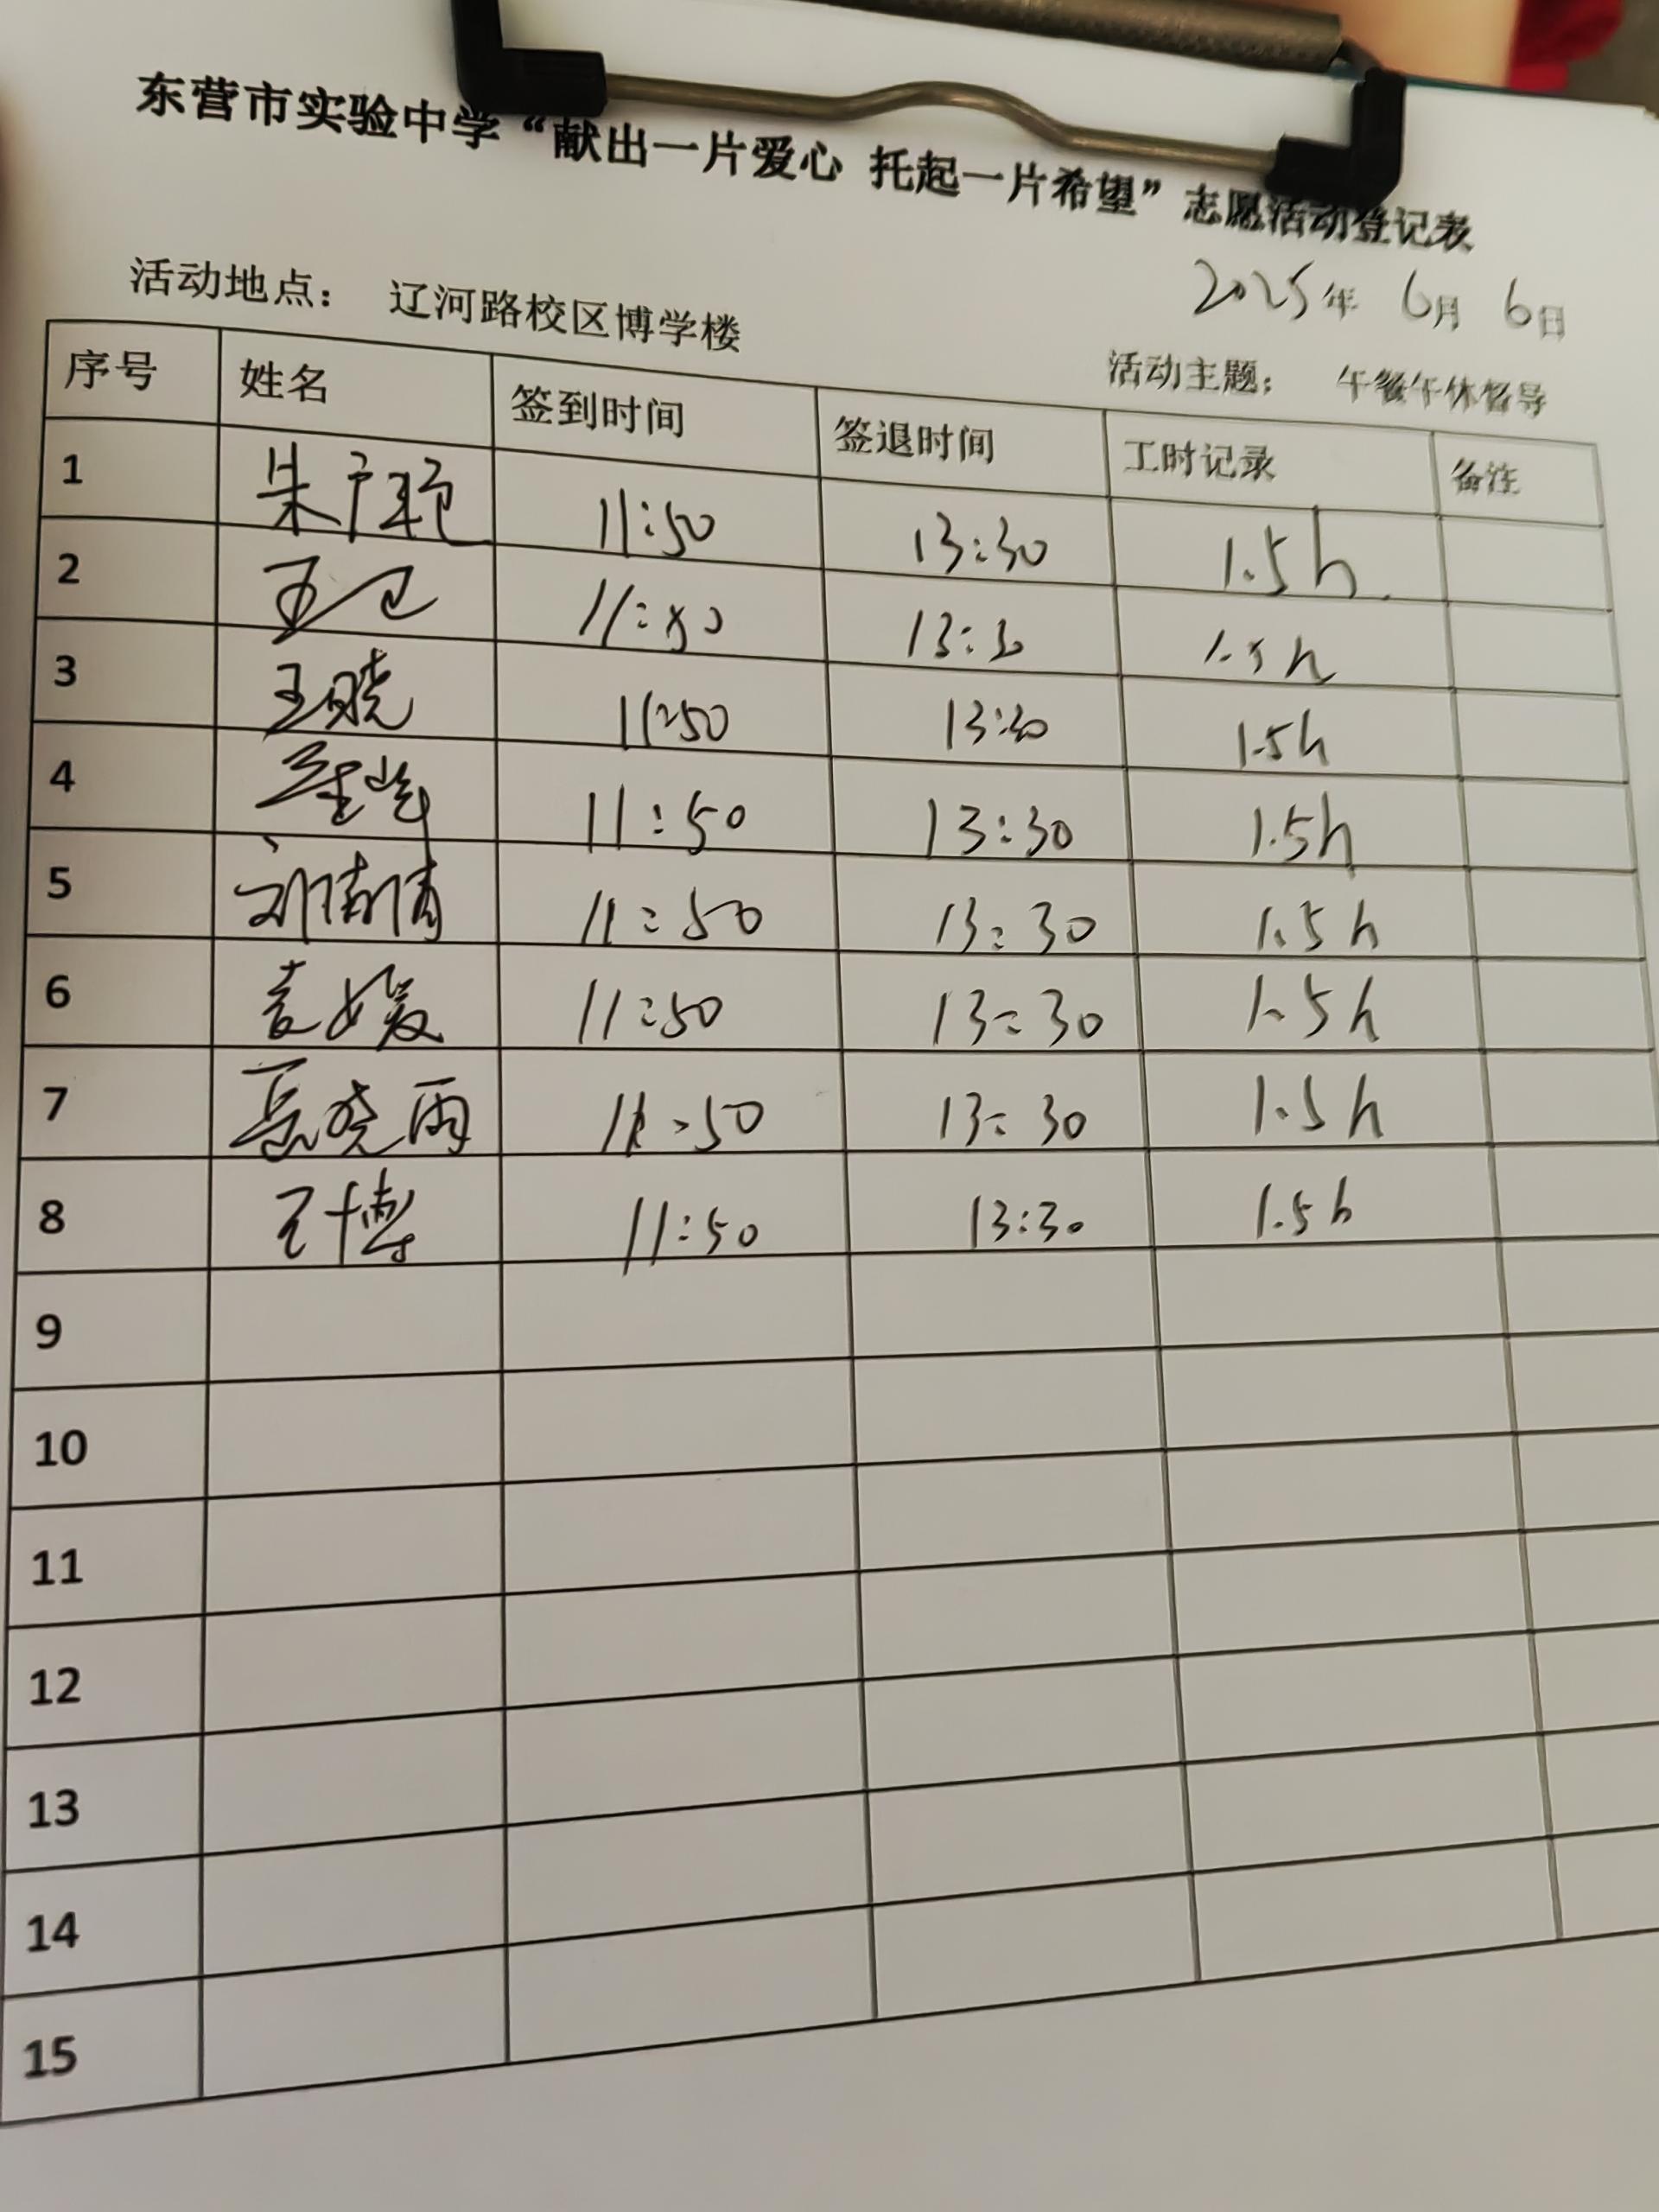 东营市实验中学“献出一片爱心 托起一片希望”志愿活动登记表
2025年 6月 6日
活动地点： 辽河路校区博学楼
活动主题： 午餐午休督导
序号 姓名 签到时间 签退时间 工时记录 备注
1 朱广艳 11:50 13:30 1.5h
2 11:50 13:30 1.5h
3 王晓 11:50 13:30 1.5h
4 11:50 13:30 1.5h
5 刘倩倩 11:50 13:30 1.5h
6 袁媛 11:50 13:30 1.5h
7 岳晓雨 11:50 13:30 1.5h
8 王博 11:50 13:30 1.5h
9
10
11
12
13
14
15